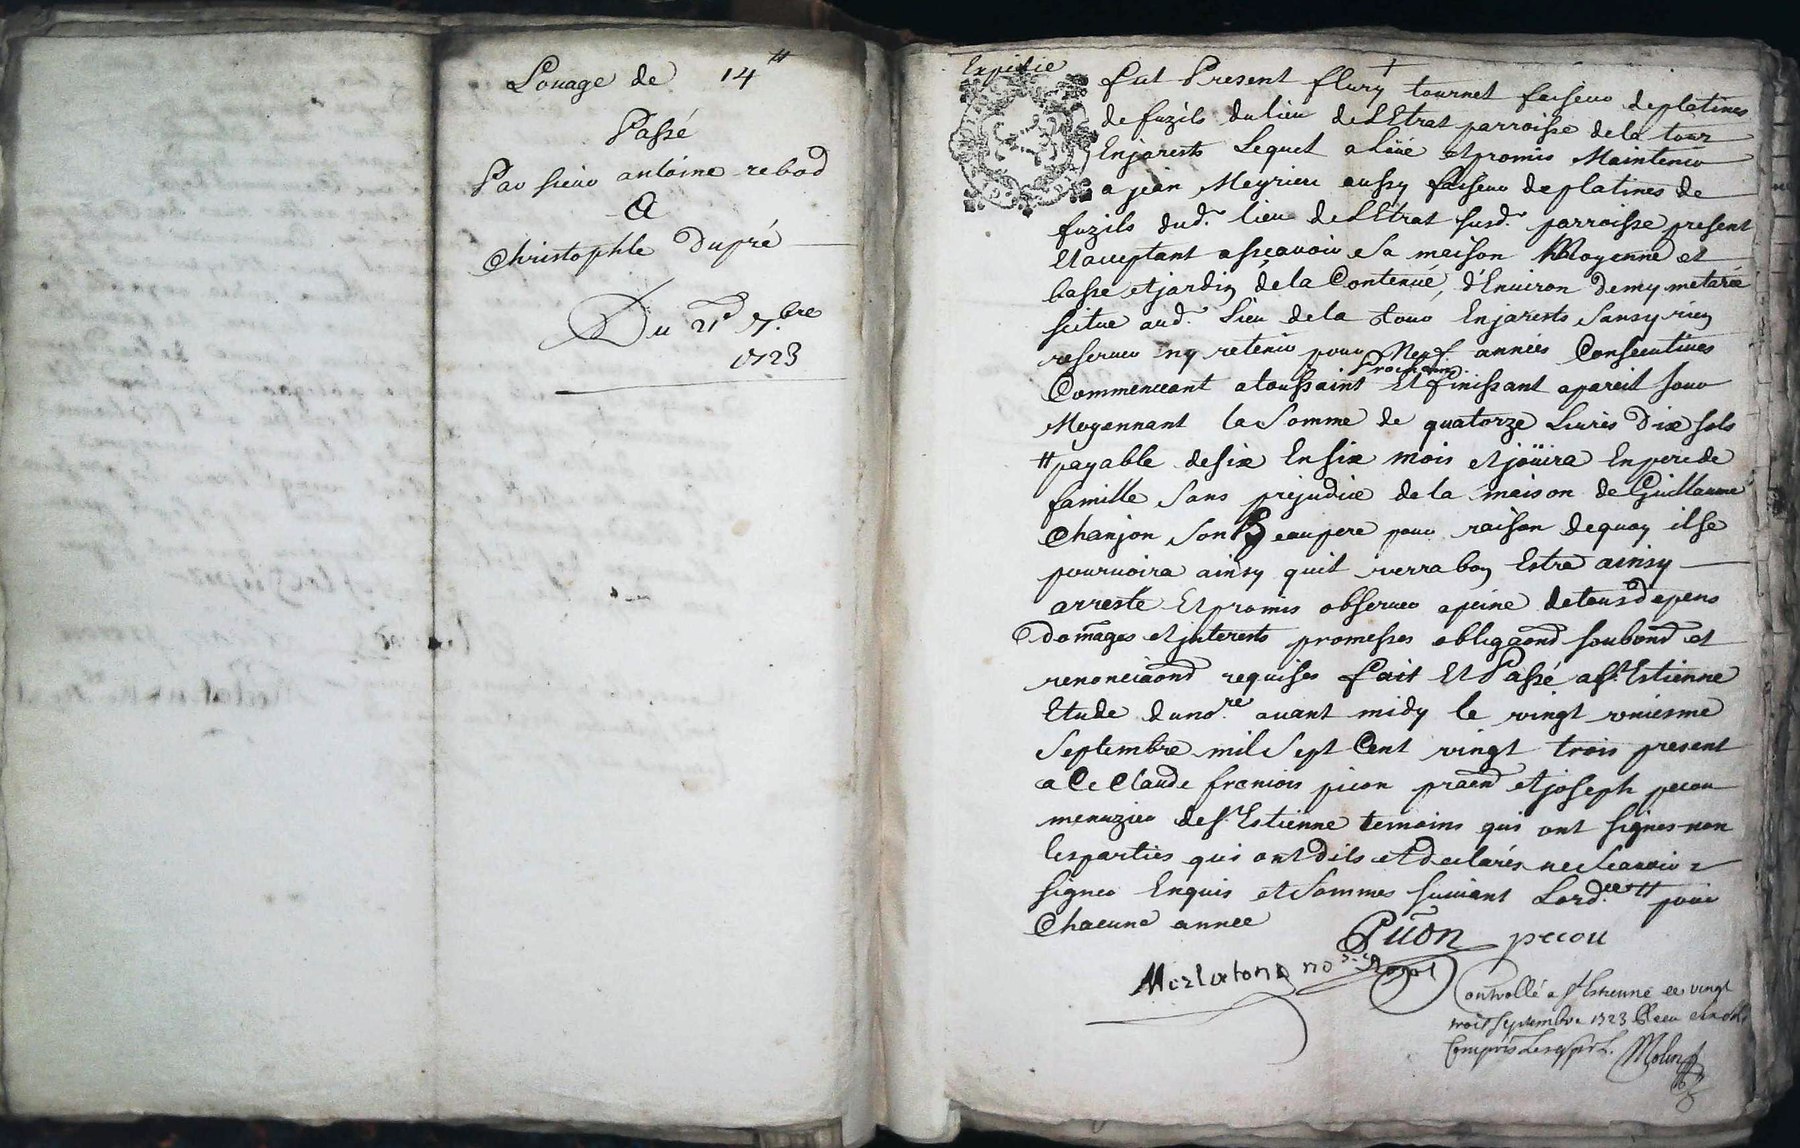 Louage de 14 ₶
Passé
Par sieur antoine rebod
A
Christophle Dupré
Du 21e 7.bre
1723
Expedie
fut Present flury tournet faiseur de platines
de fuzils du lieu de LEtrat parroisse de la tour
Enjarests Lequel a Loüe et promis Maintenir
a jean Meyrieu aussy faiseur de platines de
fuzils dud. lieu de LEtrat susd. parroisse present
Et acceptant asscavoir sa maison Moyenne et
basse et jardin de la Contenüe d'Environ demy metarée
scitue aud. Lieu de la tour Enjarests sans y rien
reserver ny retenir pour Neuf annees Consecutives
Commencant a toussaint prochaine Et finissant a pareil jour
Moyennant la somme de quatorze Livres Dix sols
₶ payable de six En six mois et joüira En pere de
famille sans prejudice de la maison de Guillaume
Chanjon son Beaupere pour raison de quoy il se
pourvoira ainsy quil verra bon Estre ainsy
arreste Et promis observer a peine de tous depens
domages et interests promesses obligaons soubons et
renonciaons requises fait Et Passé a St. Estienne
Etude du no.re avant midy le vingt uniesme
Septembre mil sept Cent vingt trois present
a Ce Claude francois picon praen et joseph pecou
menuzier de St. Estienne temoins qui ont signes non
les parties qui ont dits et declarés ne scavoir
signer Enquis et sommes suivant Lord.ce ₶ pour
Chacune annee
Picon pecou
Merlaton no.re Royal
Controllé a St Estienne ce vingt
trois septembre 1723 Receu
Compris Molin